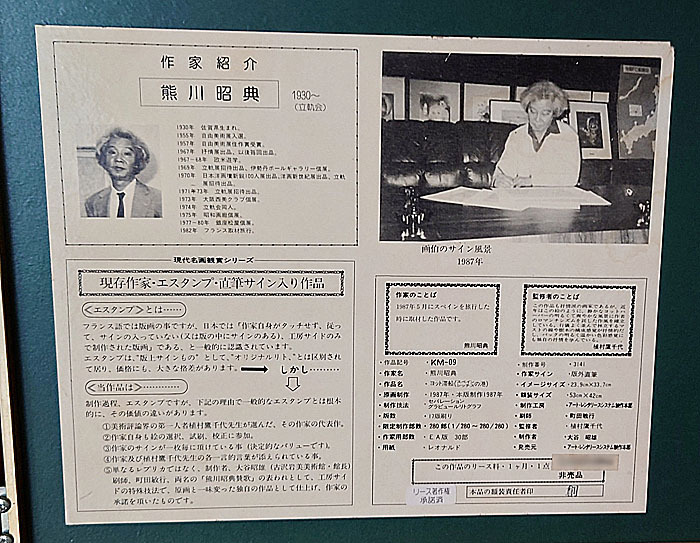 作家紹介
熊川昭典
1930～
(立軌会)
1930年 佐賀県生まれ。
1955年 自由美術展入選。
1957年 自由美術展佳作賞受賞。
1967年 抒情展出品、以後毎回出品。
1967～68年 欧米遊学。
1969年 立軌展招待出品、伊勢丹ボールギャラリー個展。
1970年 日本洋画壇新鋭10人展出品、洋画新世紀展出品、立軌展招待出品。
1971年73年 立軌展招待出品。
1973年 大阪西美クラブ個展。
1974年 立軌会同人。
1975年 昭和画廊個展。
1977～80年 銀座松屋個展。
1982年 フランス取材旅行。
画伯のサイン風景
1987年
現代名画観賞シリーズ
現存作家・エスタンプ・直筆サイン入り作品
<エスタンプ>とは……
フランス語では版画の事ですが、日本では「作家自身がタッチせず、従って、サインの入っていない(又は版の中にサインのある)、工房サイドのみで制作された版画」である、と一般的に認識されています。
エスタンプは、"版上サインもの"として、"オリジナルリト、"とは区別されて居り、価格にも、大きな格差があります。
しかし……
<当作品は>……
制作過程、エスタンプですが、下記の理由で一般的なエスタンプとは根本的に、その価値の違いがあります。
①美術評論界の第一人者植村鷹千代先生が選んだ、その作家の代表作。
②作家自身も絵の選択、試刷、校正に参加。
③作家のサインが一枚毎に頂けている事(決定的なバリューです)。
④作家及び植村鷹千代先生の各一言的言葉が添えられている事。
⑤単なるレプリカではなく、制作者、大谷昭雄(古沢岩美美術館・館長)刷師、町田敏行、両名の「熊川昭典賛歌」の表われとして、工房サイドの特殊技法で、原画と一味変った独自の作品として仕上げ、作家の承諾を頂いたものです。
作家のことば
1987年5月にスペインを旅行した時に取材した作品です。
熊川昭典
監修者のことば
植村鷹千代
・作品記号 KM-09
・作家名 熊川昭典
・作品名 ヨット溜船
・原画制作 1987年・本版制作1987年
・制作技法 セパレーション グラビュールリトグラフ
・版数 17版刷り
・限定制作部数 280部(1/280～280/280)
・作家用部数 EA版 30部
・用紙 レオナルド
・制作番号 3141
・作家サイン 版外直筆
・イメージサイズ 23.9cm×33.7cm
・額装サイズ 53cm×42cm
・制作工房 アート・レンタリースシステム製作本部
・刷師 町田敏行
・監修者 植村鷹千代
・制作者 大谷昭雄
・発売元 アート・レンタリースシステム製作本部
この作品のリース料・1ヶ月・1点
非売品
リース著作権
承諾済
本品の額装責任者印